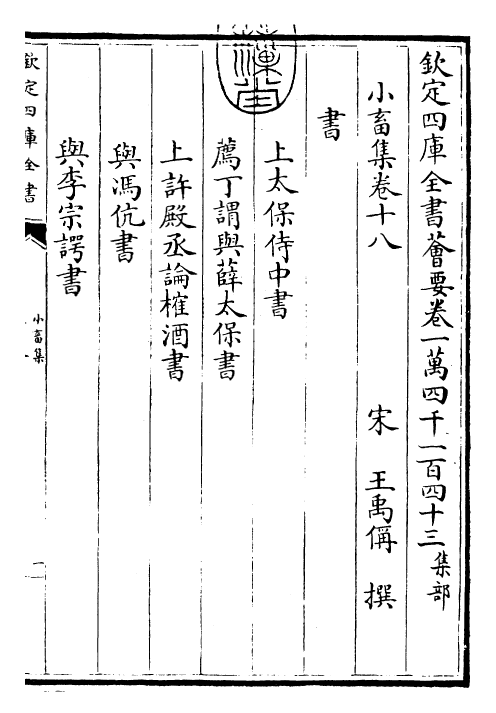 欽定四庫全書薈要卷一萬四千一百四十三集部
小畜集卷十八 宋 王禹偁 撰
書
上太保侍中書
薦丁謂與薛太保書
上許殿丞論榷酒書
與馮伉書
與李宗諤書
欽定四庫全書
小畜集